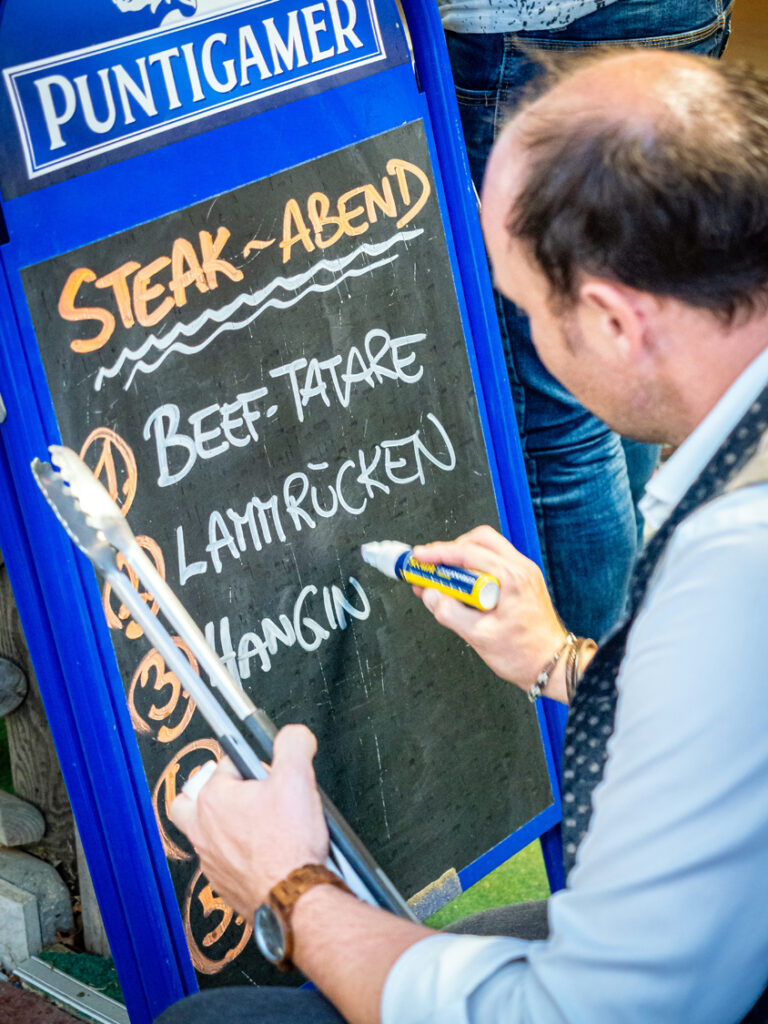 PUNTIGAMER
STEAK~ABEND
1 BEEF-TATARE
LAMMRÜCKEN
3 HANGIN
5